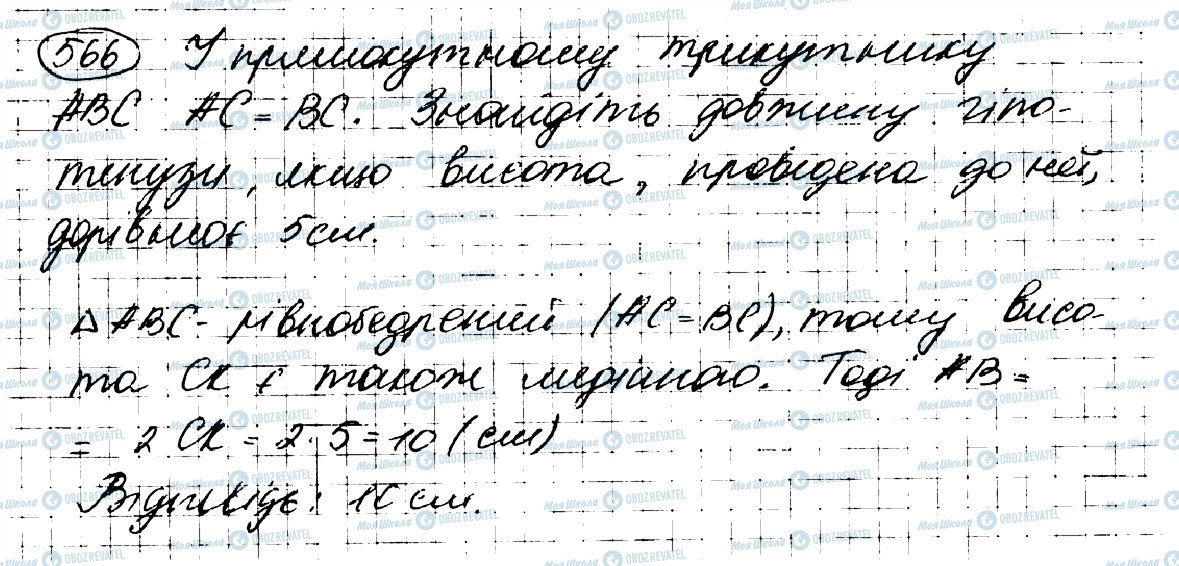 566 У прямокутному трикутнику
ABC AC = BC. Знайдіть довжину гіпо-
тенузи, якщо висота, проведена до неї,
дорівнює 5 см.
Δ ABC - рівнобедрений (AC = BC), тому висо-
та CK є також медіаною. Тоді AB =
= 2 CK = 2 · 5 = 10 (см)
Відповідь: 10 см.